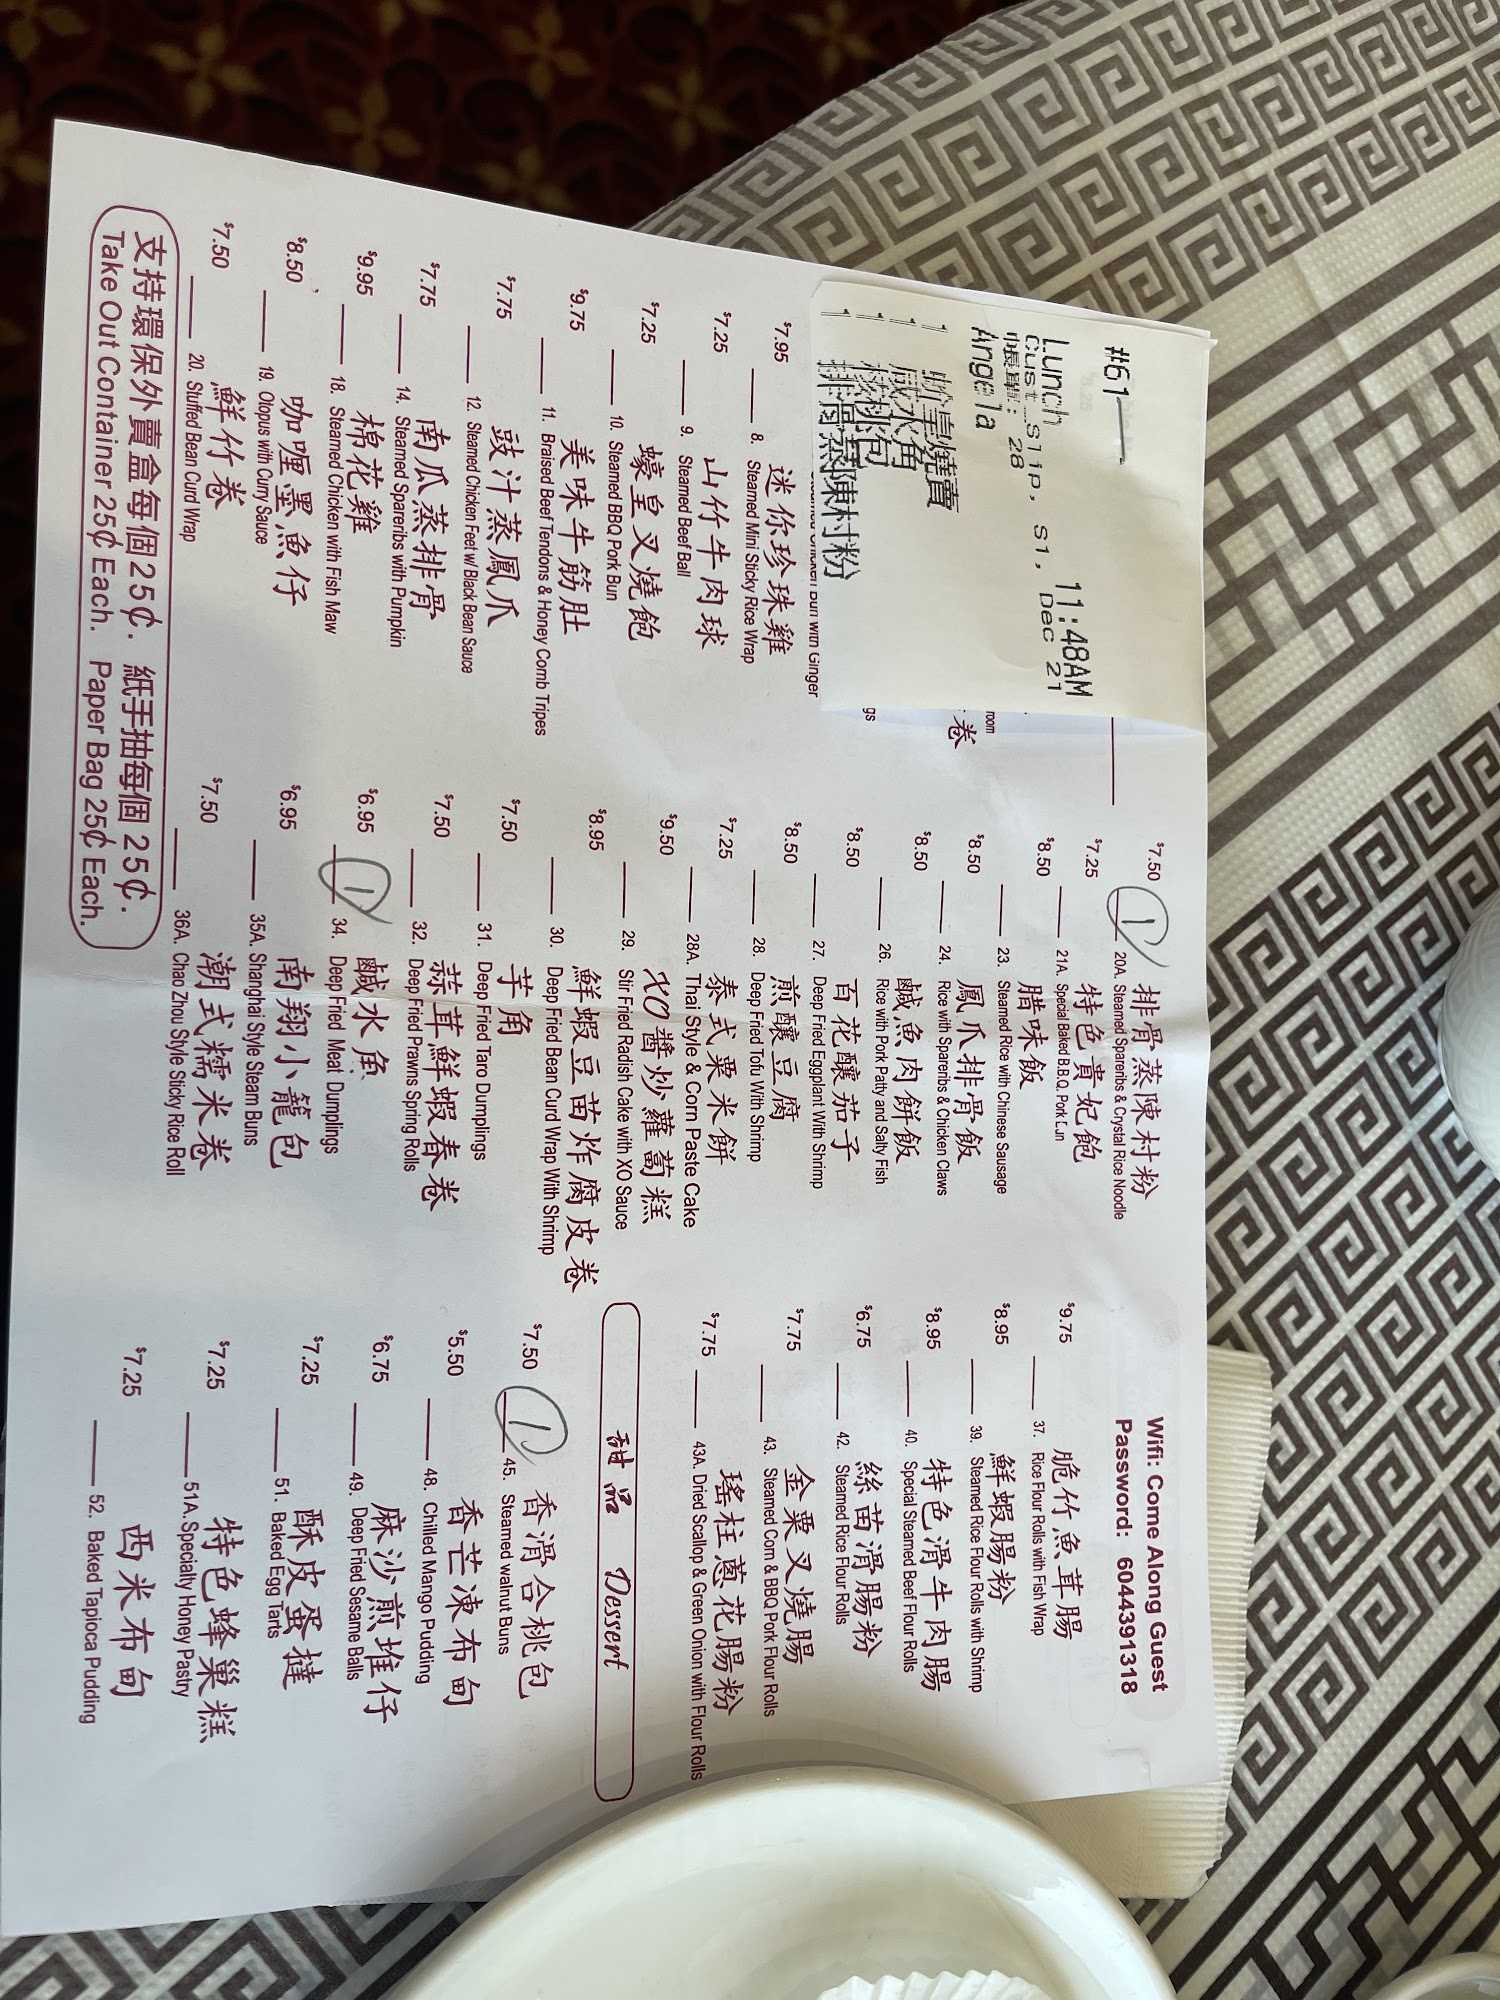 #61
11:48AM
Lunch
Cust Slip, S1, Dec 21
帳單: 28
Angela
1 粉皇燒賣
1 咸水角
1 核桃包
1 排骨蒸陳村粉
room
卷
gs
Bun with Ginger
迷你珍珠雞
$7.95 8. Steamed Mini Sticky Rice Wrap
山竹牛肉球
$7.25 9. Steamed Beef Ball
蠔皇叉燒飽
$7.25 10. Steamed BBQ Pork Bun
美味牛筋肚
$9.75 11. Braised Beef Tendons & Honey Comb Tripes
豉汁蒸鳳爪
$7.75 12. Steamed Chicken Feet w/ Black Bean Sauce
南瓜蒸排骨
$7.75 14. Steamed Spareribs with Pumpkin
棉花雞
$9.95 18. Steamed Chicken with Fish Maw
咖喱墨魚仔
$8.50 19. Otopus with Curry Sauce
鮮竹卷
$7.50 20. Stuffed Bean Curd Wrap
排骨蒸陳村粉
$7.50 1 20A. Steamed Spareribs & Crystal Rice Noodle
特色貴妃飽
$7.25 21A. Special Baked B.B.Q. Pork Bun
腊味飯
$8.50 23. Steamed Rice with Chinese Sausage
鳳爪排骨飯
$8.50 24. Rice with Spareribs & Chicken Claws
鹹魚肉餅飯
$8.50 26. Rice with Pork Patty and Salty Fish
百花釀茄子
$8.50 27. Deep Fried Eggplant With Shrimp
煎釀豆腐
$8.50 28. Deep Fried Tofu With Shrimp
泰式粟米餅
$7.25 28A. Thai Style & Corn Paste Cake
XO醬炒蘿蔔糕
$9.50 29. Stir Fried Radish Cake with XO Sauce
鮮蝦豆苗炸腐皮卷
$8.95 30. Deep Fried Bean Curd Wrap With Shrimp
芋角
$7.50 31. Deep Fried Taro Dumplings
蒜茸鮮蝦春卷
$7.50 32. Deep Fried Prawns Spring Rolls
鹹水角
$6.95 1 34. Deep Fried Meat Dumplings
南翔小籠包
$6.95 35A. Shanghai Style Steam Buns
潮式糯米卷
$7.50 36A. Chao Zhou Style Sticky Rice Roll
Wifi: Come Along Guest
Password: 6044391318
脆竹魚茸腸
$9.75 37. Rice Flour Rolls with Fish Wrap
鮮蝦腸粉
$8.95 39. Steamed Rice Flour Rolls with Shrimp
特色滑牛肉腸
$8.95 40. Special Steamed Beef Flour Rolls
絲苗滑腸粉
$6.75 42. Steamed Rice Flour Rolls
金粟叉燒腸
$7.75 43. Steamed Corn & BBQ Pork Flour Rolls
瑤柱蔥花腸粉
$7.75 43A. Dried Scallop & Green Onion with Flour Rolls
甜品 Dessert
香滑合桃包
$7.50 1 45. Steamed walnut Buns
香芒凍布甸
$5.50 48. Chilled Mango Pudding
麻沙煎堆仔
$6.75 49. Deep Fried Sesame Balls
酥皮蛋撻
$7.25 51. Baked Egg Tarts
特色蜂巢糕
$7.25 51A. Specialty Honey Pastry
西米布甸
$7.25 52. Baked Tapioca Pudding
支持環保外賣盒每個25¢. 紙手抽每個 25¢.
Take Out Container 25¢ Each. Paper Bag 25¢ Each.